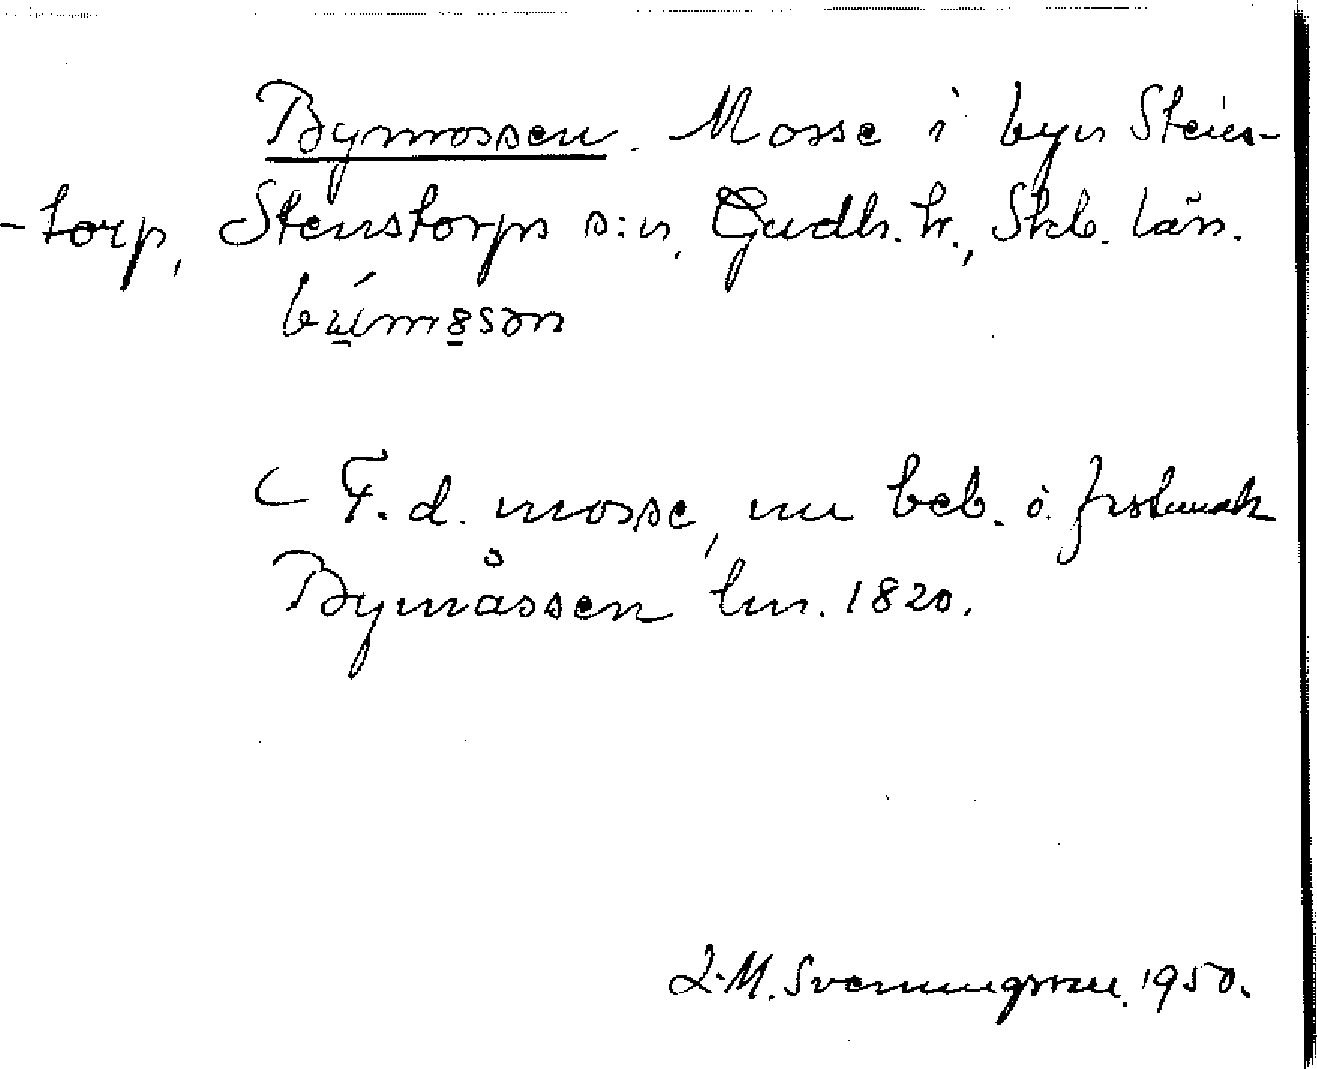 Bymossen. Mosse i byn Stens-
-torp, Stenstorps s:n, Gudh. hr., Skb. län.
F.d. mosse, nu beb. o.
Bymåssen lm. 1820.
L-M. Svenungsson. 1950.